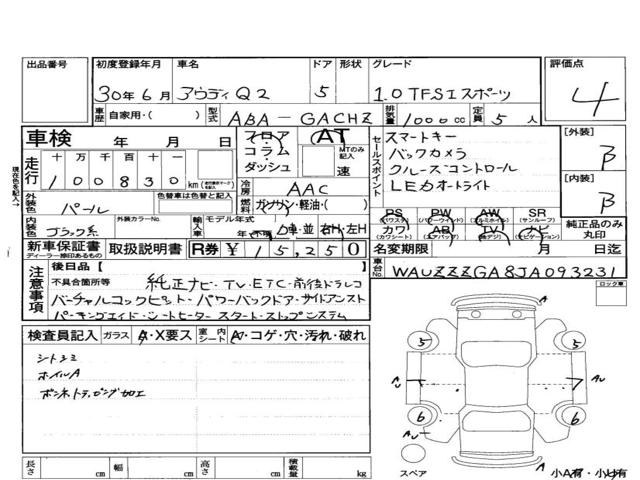 出品番号 初度登録年月 車名 ドア 形状 グレード 評価点
30年6月 アウディQ2 5 1.0 TFSIスポーツ 4
車歴 自家用・( ) 型式 ABA-GACHZ 排気量 1000cc 定員 5人
車検 年 月 日
フロア コラム ダッシュ AT MTのみ記入 速
セールスポイント
スマートキー
バックカメラ
クルーズコントロール
LEDオートライト
[外装] B
[内装] B
現在色を記入→
走行 十 万 千 百 十 一
100830 km
冷房 AAC
燃料 ガソリン・軽油・( )
外装色 パール 色替車は色替と記入
内装色 ブラック系 外装カラーNo.
輸入車 モデル年式 年・不明 D車・並 右H・左H
PS PW AW SR
(パワステ) (パワーウィンド) (アルミホイル) (サンルーフ)
カワ AB TV ナビ
(カワシート) (エアバック) (地デジ) (ナビゲーション)
純正品のみ丸印
新車保証書 ディーラー捺印あるもの 取扱説明書 R券 ¥15,250
名変期限 月 日迄
車台No. WAUZZZGA8JA093231
注意事項
後日品【
不具合箇所等 純正ナビ・TV・ETC・前後ドラレコ
バーチャルコックピット・パワーバックドア・サイドアシスト
パーキングエイド・シートヒーター スタート・ストップシステム
ロック車
検査員記入 ガラス A・X要ス 室内シート A・コゲ・穴・汚れ・破れ
シトシミ
ホイルA
A
5 5
AU 7 AU
6 6
スペア A
小A有・小U有
長さ cm 幅 cm 高さ cm 積載量 kg